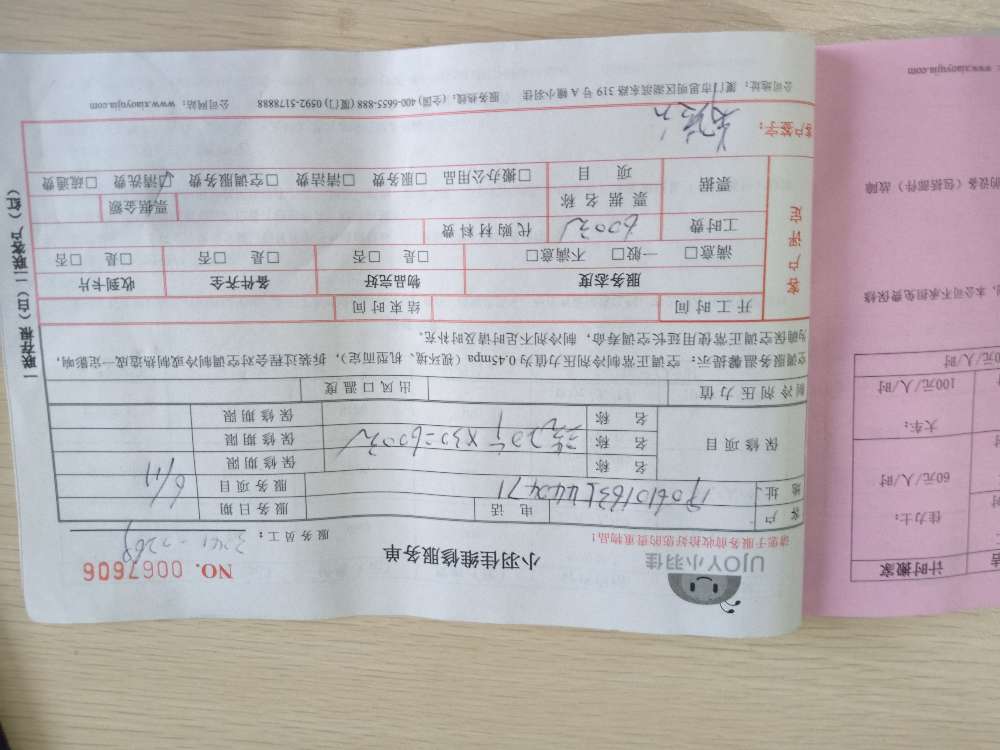 UJOY小羽佳
小羽佳维修服务单
NO. 0067606
请您于服务前收拾好您的贵重物品！
服务员工：
客户
电话
服务日期
6/11
地址
服务项目
保修项目
名称
保修期限
名称
20台×30=600元
保修期限
名称
保修期限
制冷剂压力值
出风口温度
空调服务温馨提示：空调正常制冷剂压力值为0.45mpa（视环境、机型而定），拆装过程会对空调制冷或制热造成一定影响，
为确保空调正常使用延长空调寿命，制冷剂不足时请及时补充。
客户评定
开工时间
结束时间
服务态度
物品完好
备件齐全
收到卡片
满意□ 一般□ 不满意□
□是 □否
□是 □否
□是 □否
工时费
600元
代购材料费
票据
票据名称
票据金额
项目
□搬办公用品 □服务费 □清洁费 □空调服务费 □清洗费 □疏通费
客户签字：
公司地址：厦门市思明区湖滨东路319号A幢小羽佳 服务热线：(全国) 400-6655-888 (厦门) 0592-5178888 公司网站：www.xiaoyujia.com
一联存根（白）二联客户（红）
计时搬家
佳力士：
60元/人/时
大车：
100元/人/时
0元/人/时
，本公司不承担免费保修
的设备（包括部件）故障
：www.xiaoyujia.com